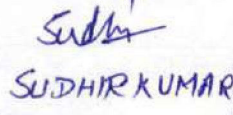 Sudhir
SUDHIR KUMAR